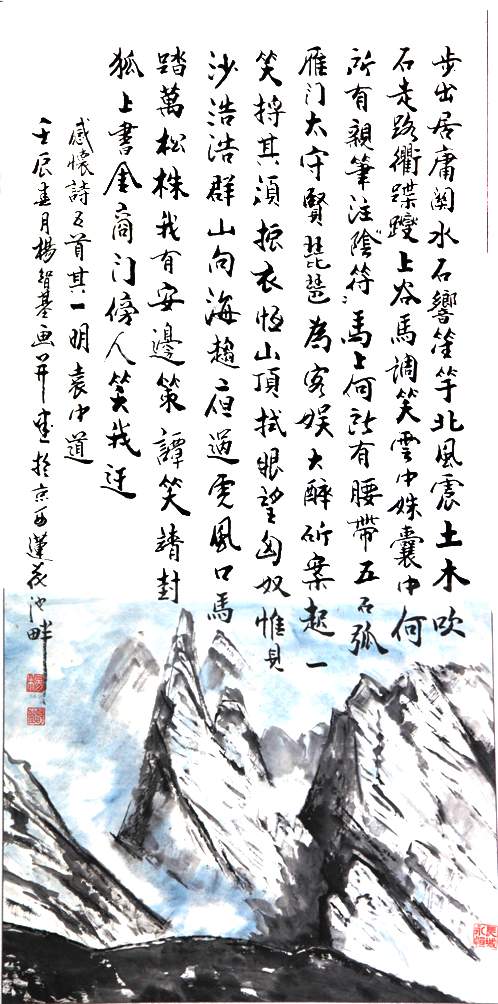 步出居庸關水石響笙竽北風震土木吹
石走路衢蹀躞上谷馬調笑雲中姝囊中何
所有親筆注陰符馬上何所有腰帶五石弧
雁门太守賢琵琶為客娛大醉斫案起一
笑捋其須振衣恆山頂拭眼望匈奴惟見
沙浩浩群山向海趨夜過虎風口馬
踏萬松株我有安邊策譚笑請封
狐上書金商门傍人笑我迂
感懷詩五首其一明袁中道
壬辰春月楊智基画并書於京西蓮花池畔
長城永恆